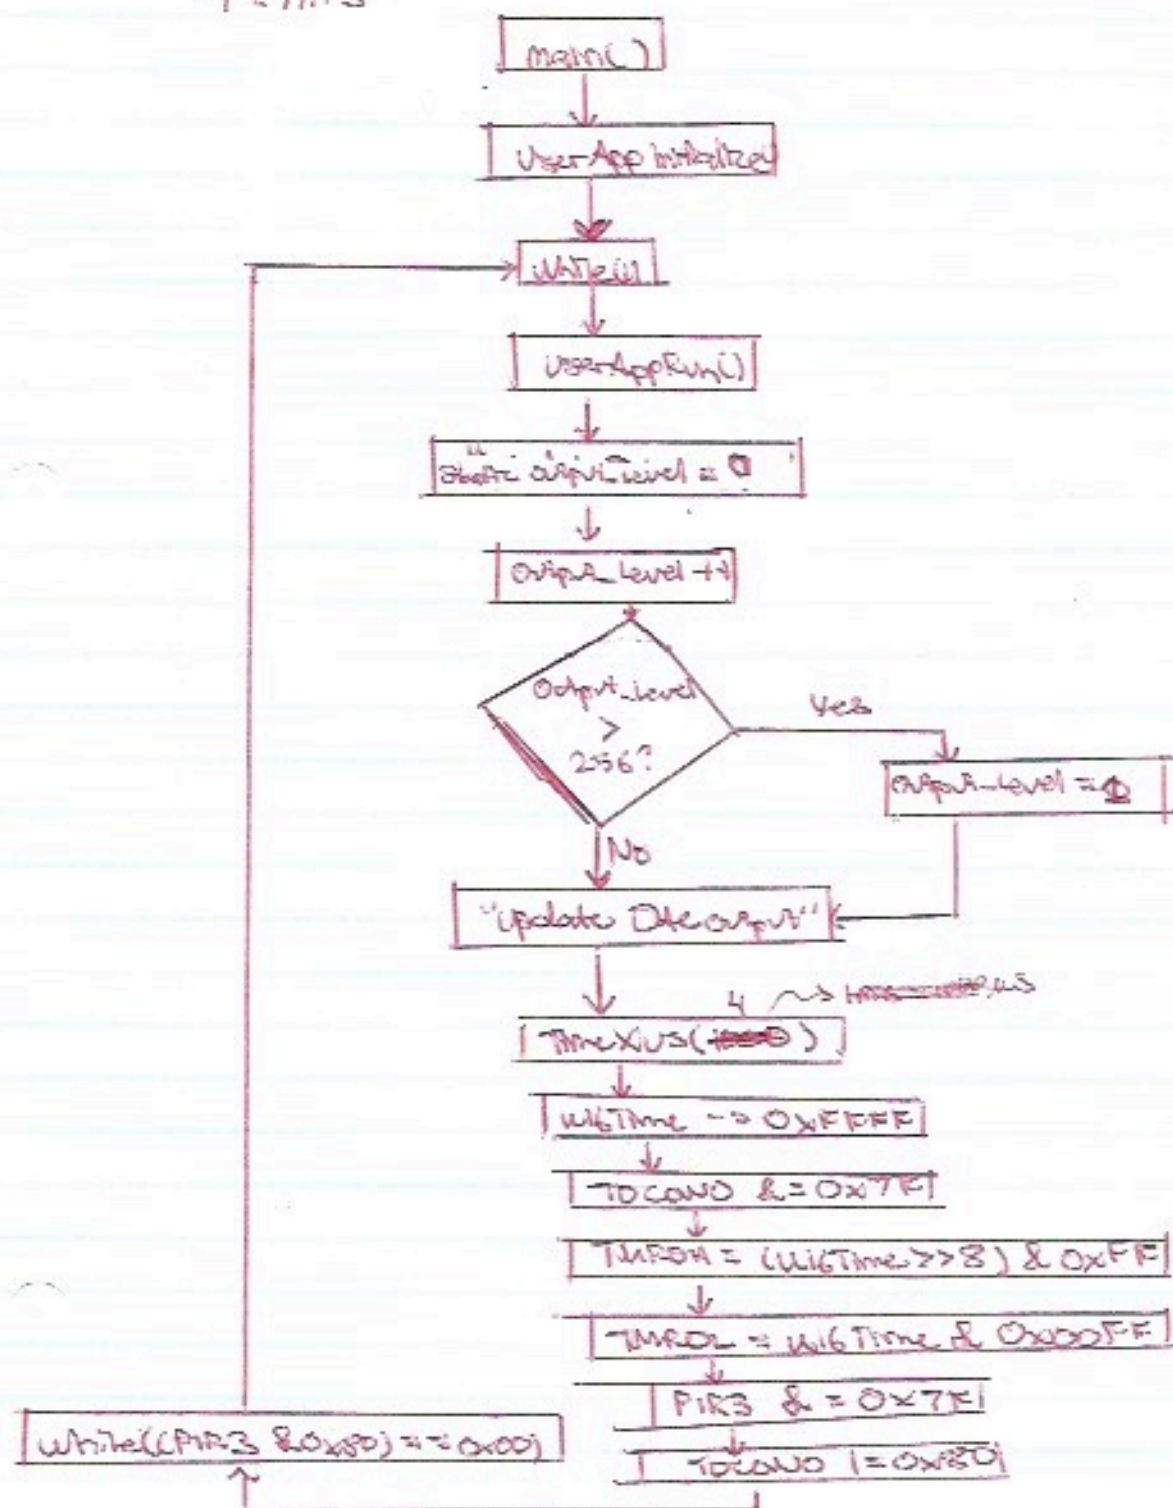 main()
UserAppInitialize()
while(1)
UserAppRun()
static output_level = 0
Output_Level ++
Output_level
>
256?
Yes
Output_Level = 0
No
"Update DAC output"
4
TimeXus( )
u16Time -> 0xFFFF
T0CON0 &= 0x7F
TMR0H = (u16Time>>8) & 0xFF
TMR0L = u16Time & 0x00FF
PIR3 &= 0x7F
while((PIR3 & 0x80) == 0x00)
T0CON0 |= 0x80